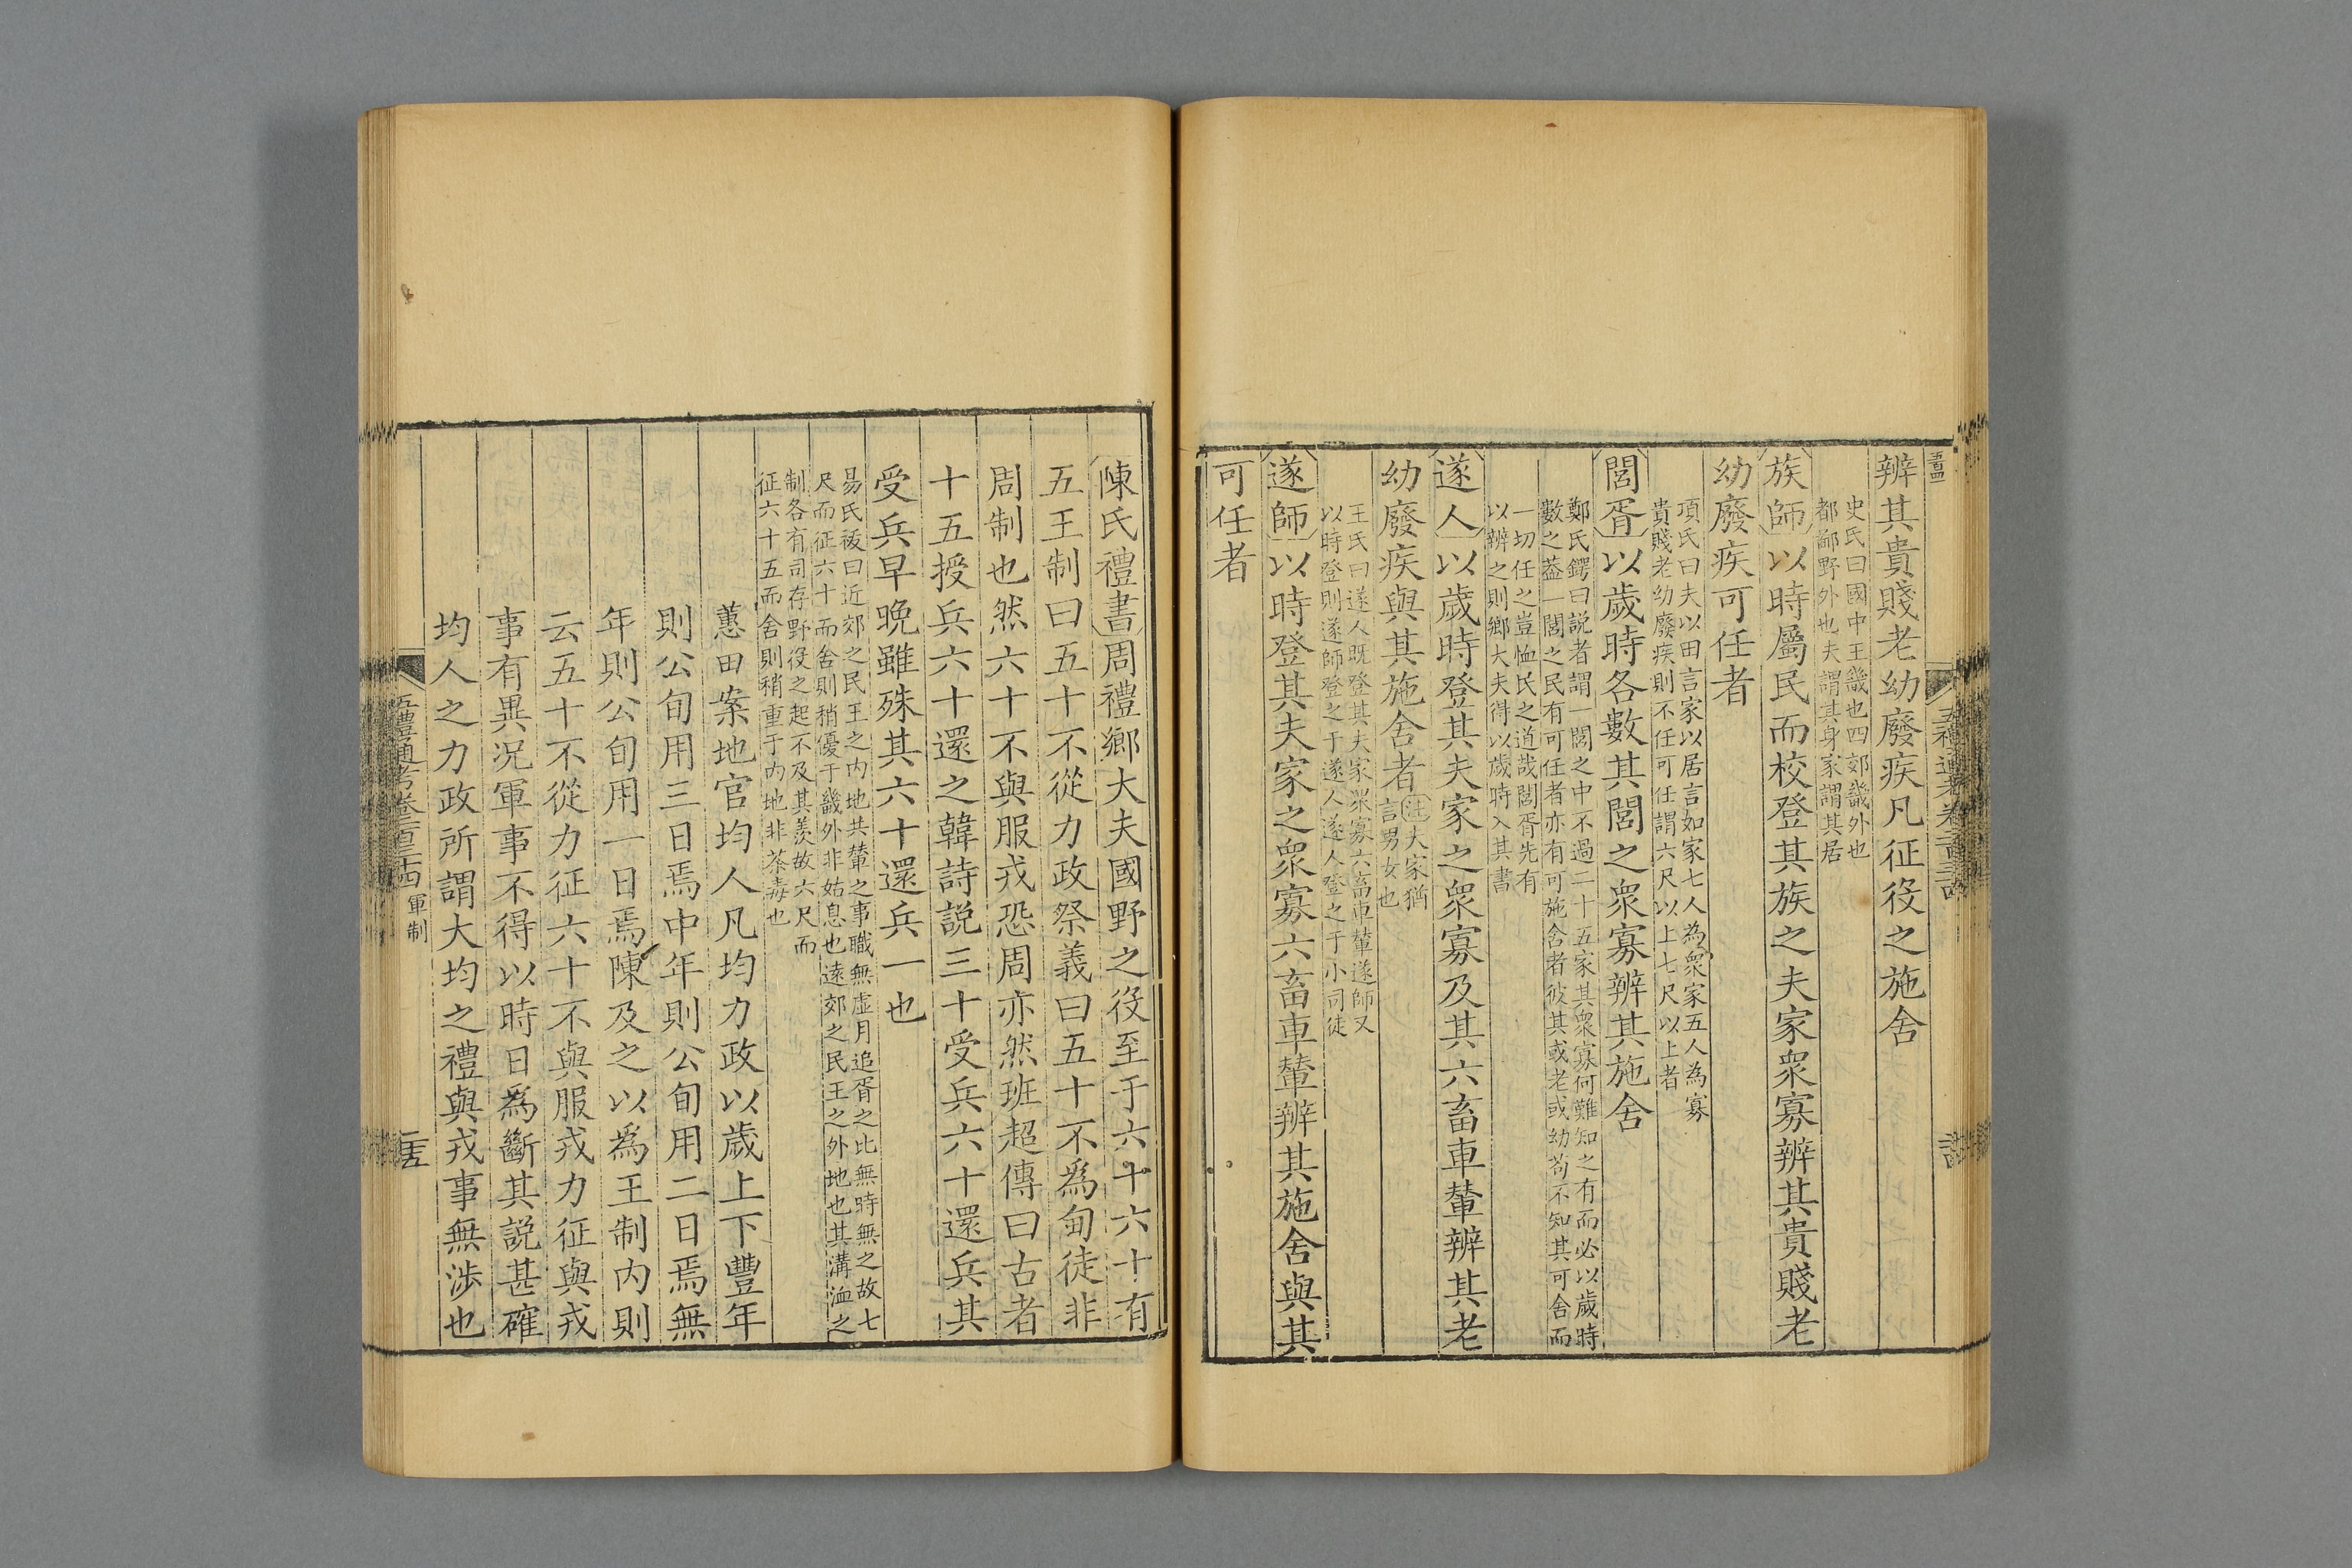 辨其貴賤老幼廢疾凡征役之施舍
史氏曰國中王畿也四郊畿外也
都鄙野外也夫謂其身家謂其居
族師以時屬民而校登其族之夫家眾寡辨其貴賤老
幼廢疾可任者
項氏曰夫以田言家以居言如家七人為衆家五人為寡
貴賤老幼廢疾則不任可任謂六尺以上七尺以上者
閭胥以歲時各數其閭之衆寡辨其施舍
鄭氏鍔曰説者謂一閭之中不過二十五家其衆寡何難知之有而必以歲時
數之葢一閭之民有可任者亦有可施舍者彼其或老或幼苟不知其可舍而
一切任之豈恤民之道哉閭胥先有
以辨之則鄉大夫得以歲時入其書
遂人以歲時登其夫家之衆寡及其六畜車輦辨其老
幼廢疾與其施舍者
注夫家猶
言男女也
王氏曰遂人既登其夫家衆寡六畜車輦遂師又
以時登則遂師登之于遂人遂人登之于小司徒
遂師以時登其夫家之衆寡六畜車輦辨其施舍與其
可任者
陳氏禮書周禮鄉大夫國野之役至于六十六十有
五王制曰五十不從力政祭義曰五十不爲甸徒非
周制也然六十不與服戎恐周亦然班超傳曰古者
十五授兵六十還之韓詩説三十受兵六十還兵其
受兵早晚雖殊其六十還兵一也
易氏祓曰近郊之民王之内地共輦之事職無虚月追胥之比無時無之故七
尺而征六十而舍則稍優于畿外非姑息也逺郊之民王之外地也其溝洫之
制各有司存野役之起不及其羨故六尺而
征六十五而舍則稍重于内地非荼毒也
蕙田案地官均人凡均力政以歲上下豐年
則公旬用三日焉中年則公旬用二日焉無
年則公旬用一日焉陳及之以爲王制内則
云五十不從力征六十不與服戎力征與戎
事有異况軍事不得以時日爲斷其説甚確
均人之力政所謂大均之禮與戎事無渉也
五禮通考卷二百三十四 軍制